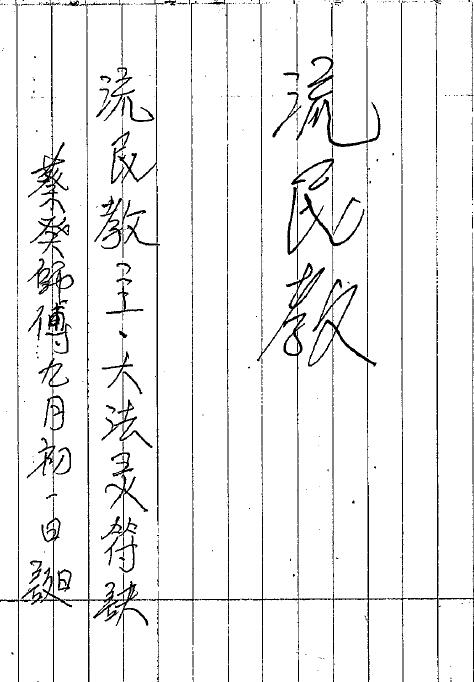 流民教
流民教主、大法灵符訣
蔡癸師傅九月初一日